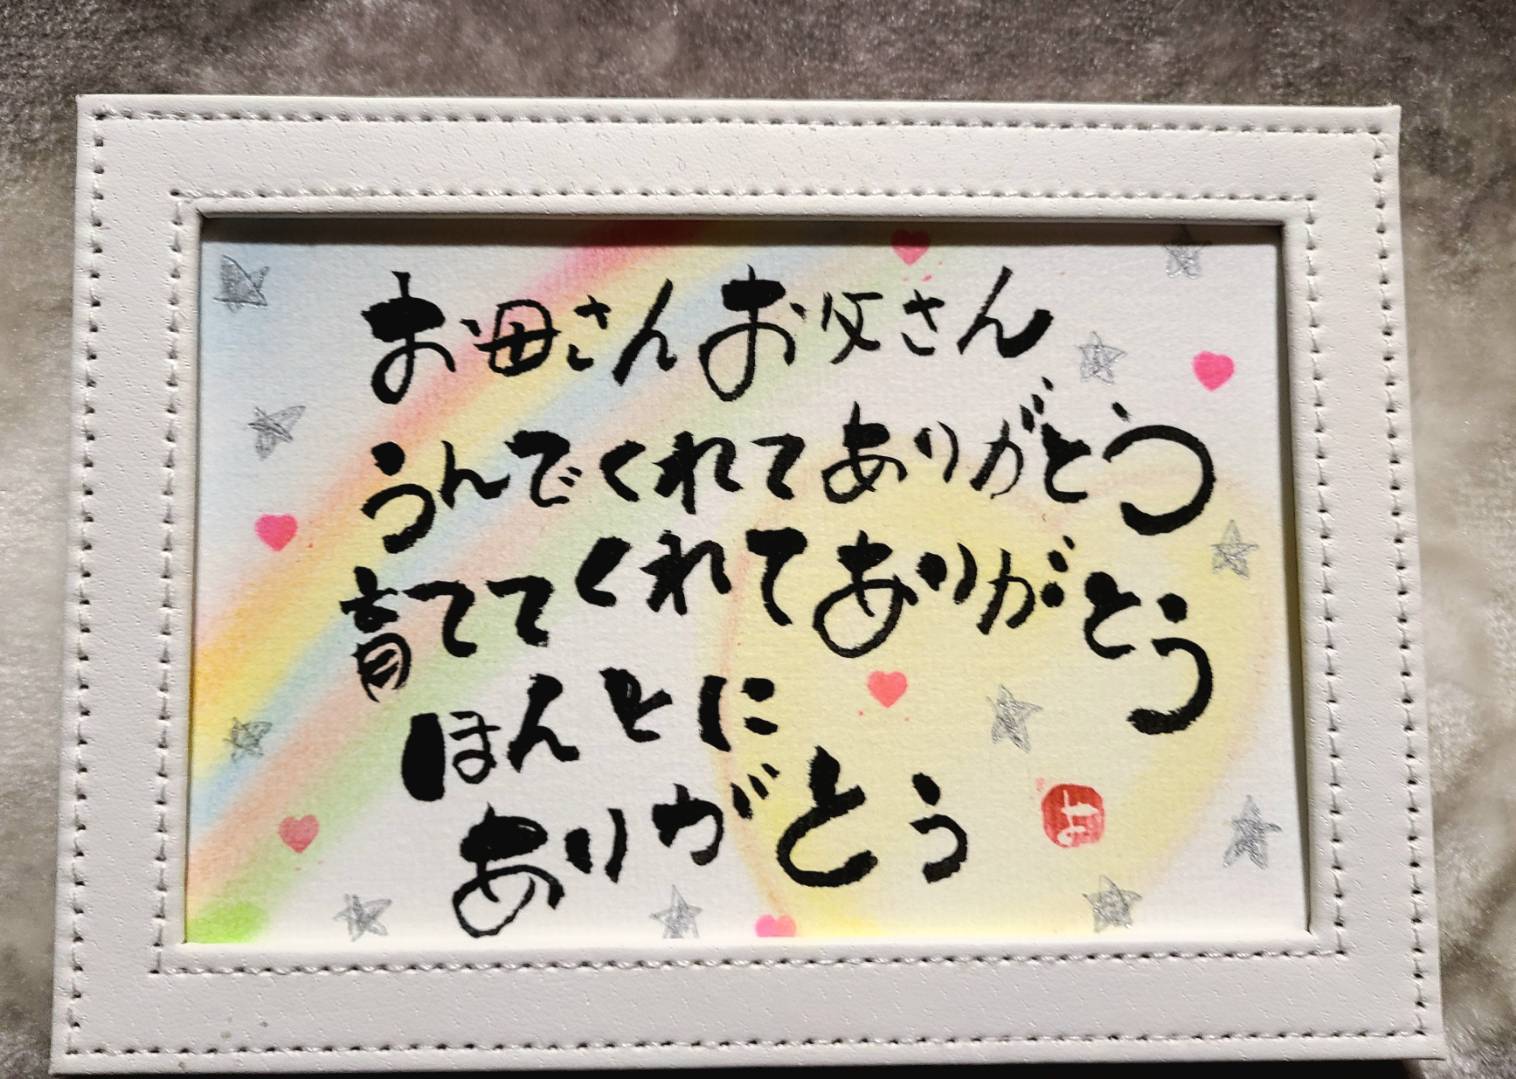 お母さんお父さん
うんでくれてありがとう
育ててくれてありがとう
ほんとに
ありがとう